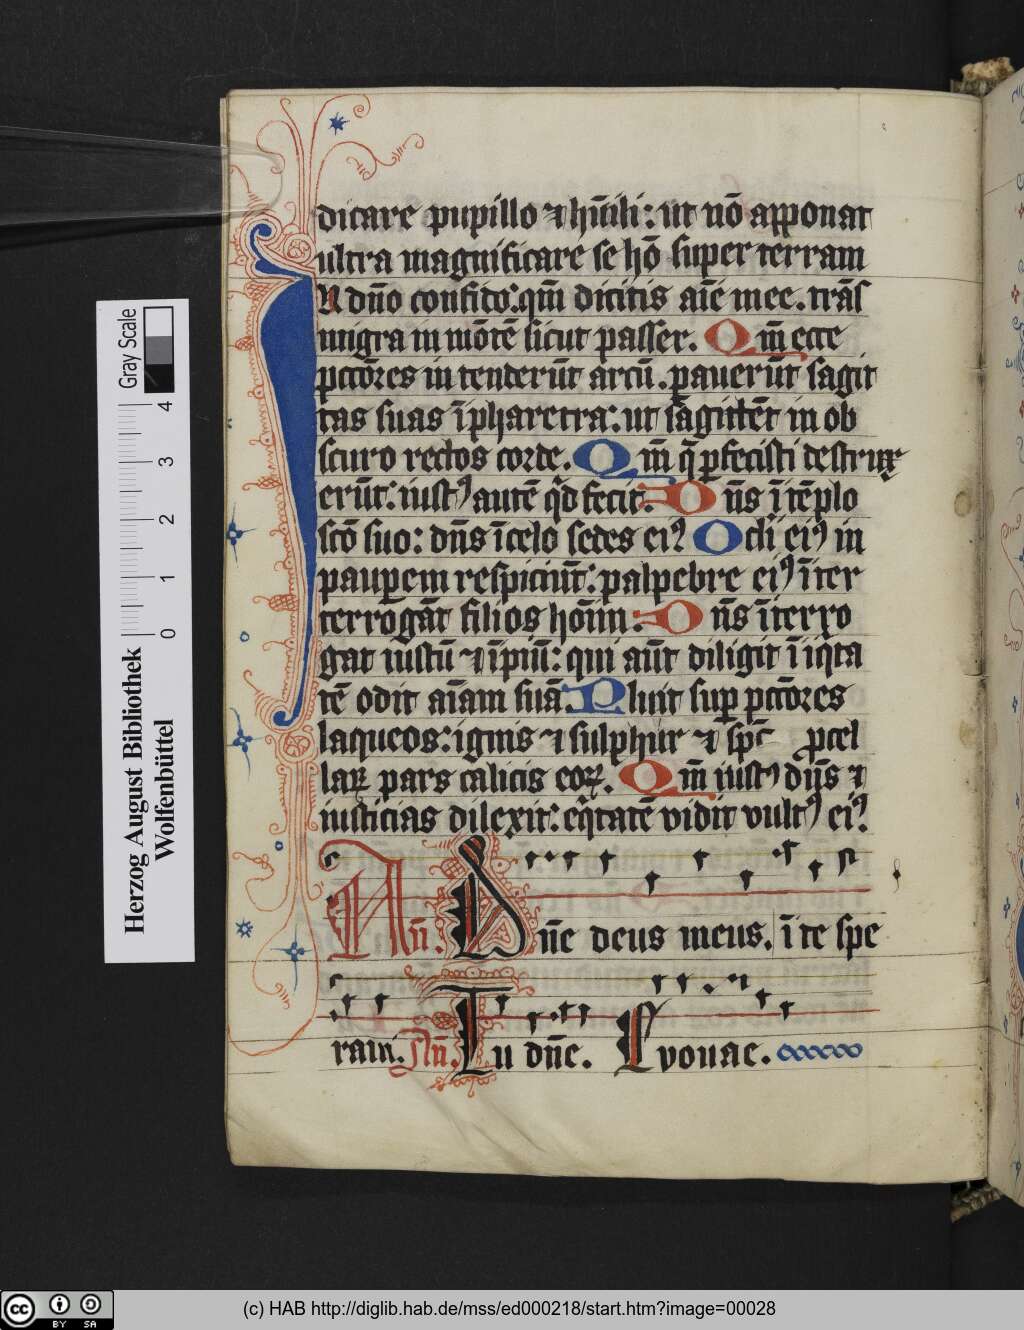 dicare pupillo ⁊ hūili: ut nō apponat
ultra magnificare se hō super terram
In dn̄o confido: qm̄ dicitis aīe mee. trās
migra in mōtē sicut passer. Qm̄ ecce
pctōres in tenderūt arcū. parauerūt sagit
tas suas ī pharetra: ut sagittēt in ob
scuro rectos corde. Qm̄ q̄ pfecisti destrux
erūt: iustꝰ autē qd fecit. Dn̄s ī tēplo
scō suo: dn̄s ī celo sedes eiꝰ Ocli eiꝰ in
paupem respiciūt: palpebre eiꝰ īter
terrogāt filios hoīm. Dn̄s īterro
gat iustū ⁊ īpiū: qui aūt diligit ī iqta
tē odit aīam suā. Pluit sup pctōres
laqueos: ignis ⁊ sulphur ⁊ sp̄c pcel
larꝝ pars calicis eorꝝ. Qm̄ iustꝰ dn̄s ⁊
iusticias dilexit: eq̄tatē vidit vultꝰ eiꝰ.
An̄. Dn̄e deus meus, ī te spe
raui. An̄. Tu dn̄e. Evouae.
Herzog August Bibliothek
Wolfenbüttel
Gray Scale
0 1 2 3 4
cc BY SA
(c) HAB http://diglib.hab.de/mss/ed000218/start.htm?image=00028